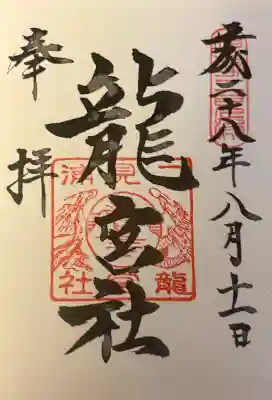 二十八年八月十一日
龍宮社
奉拝
二見浦
龍宮社